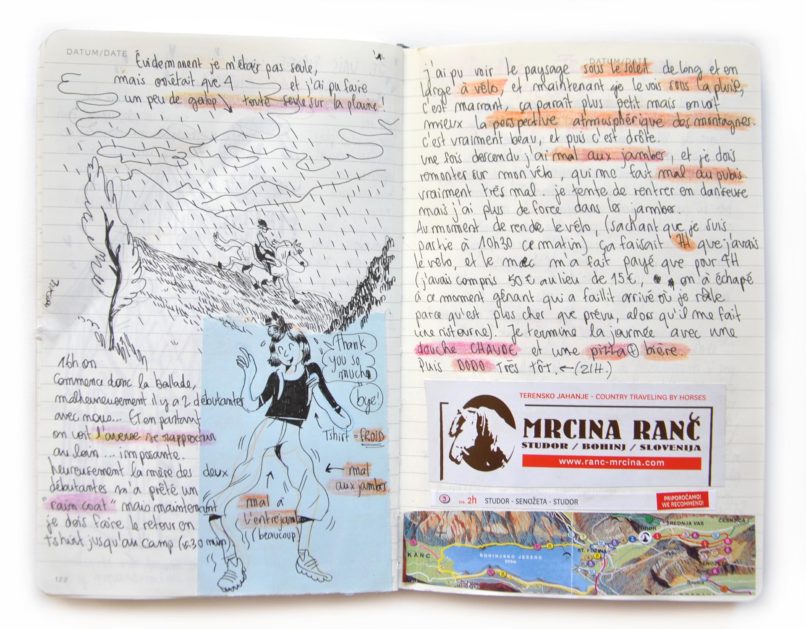 DATUM/DATE
Évidemment je m'étais pas seule,
mais on était que 4 et j'ai pu faire
un peu de galop, toute seule sur la plaine!
16h on
commence donc la ballade,
malheureusement il y a 2 débutantes
avec nous... Et en partant
on voit l'averse se rapprocher
au loin... imposante.
heureusement la mère des deux
débutantes m'a prêté un
rain coat. mais maintenant
je dois faire le retour en
tshirt jusqu'au camp (30 min)
Thank
you so
much
bye!
Tshirt = FROID
← mal
aux jambes
mal à
l'entrejambe
(beaucoup)
122
j'ai pu voir le paysage sous le soleil de long et en
large à vélo, et maintenant je le vois sous la pluie,
c'est marrant, ça paraît plus petit mais on voit
mieux la perspective atmosphérique des montagnes.
c'est vraiment beau, et puis c'est drôle.
une fois descendu j'ai mal aux jambes, et je dois
remonter sur mon vélo, qui me fait mal au pubis
vraiment très mal. je tente de rentrer en danseuse
mais j'ai plus de force dans les jambes.
Au moment de rendre le vélo, (sachant que je suis
partie à 10h30 ce matin) ça faisait 7H que j'avais
le vélo, et le mec m'a fait payé que pour 4H
(j'avais compris 50€ au lieu de 15€, on à échapé
à ce moment gênant qui a faillit arrivé où je râle
parce qu'est plus cher que prévu, alors qu'il me fait
une ristourne)! Je termine la journée avec une
douche CHAUDE et une pizza + bière.
Puis DODO TRÈS TÔT. ← (21H.)
TERENSKO JAHANJE - COUNTRY TRAVELING BY HORSES
MRCINA RANČ
STUDOR / BOHINJ / SLOVENIJA
www.ranc-mrcina.com
2h STUDOR - SENOŽETA - STUDOR
PRIPOROČAMO!
WE RECOMMEND!
BOHINJSKO JEZERO